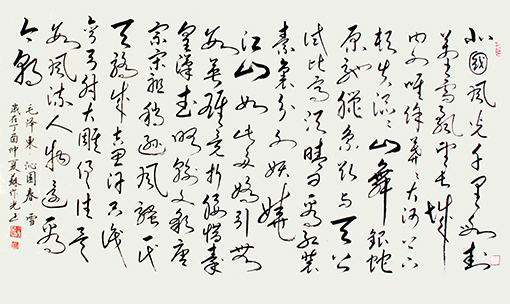 北國風光千里冰封
萬里雪飄望長城
内外唯餘莽莽大河上下
頓失滔滔山舞銀蛇
原馳蠟象欲与天公
試比高須晴日看紅裝
素裹分外妖嬈
江山如此多嬌引無
數英雄競折腰惜秦
皇漢武略輸文采唐
宗宋祖稍遜風騷一代
天驕成吉思汗只識
彎弓射大雕俱往矣
數風流人物還看
今朝
毛澤東 沁園春 雪
歲在丁酉仲夏